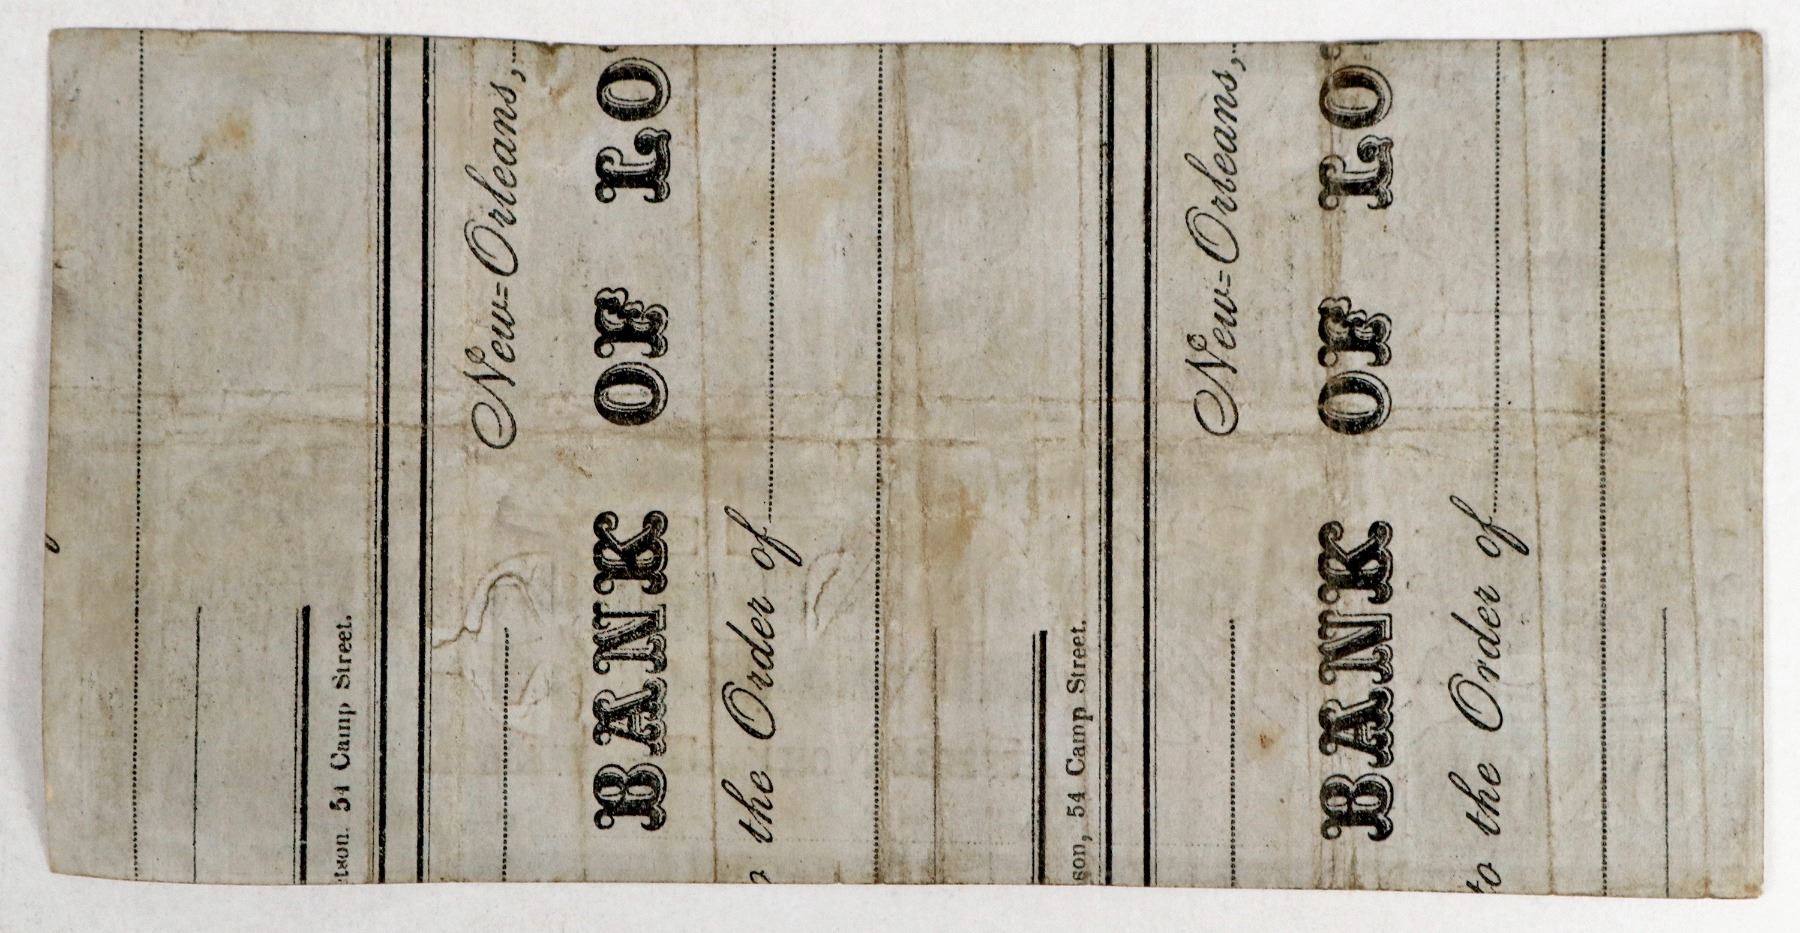 etson. 54 Camp Street.
New=Orleans,
BANK OF LO
the Order of
son, 54 Camp Street.
New=Orleans,
BANK OF LO
to the Order of